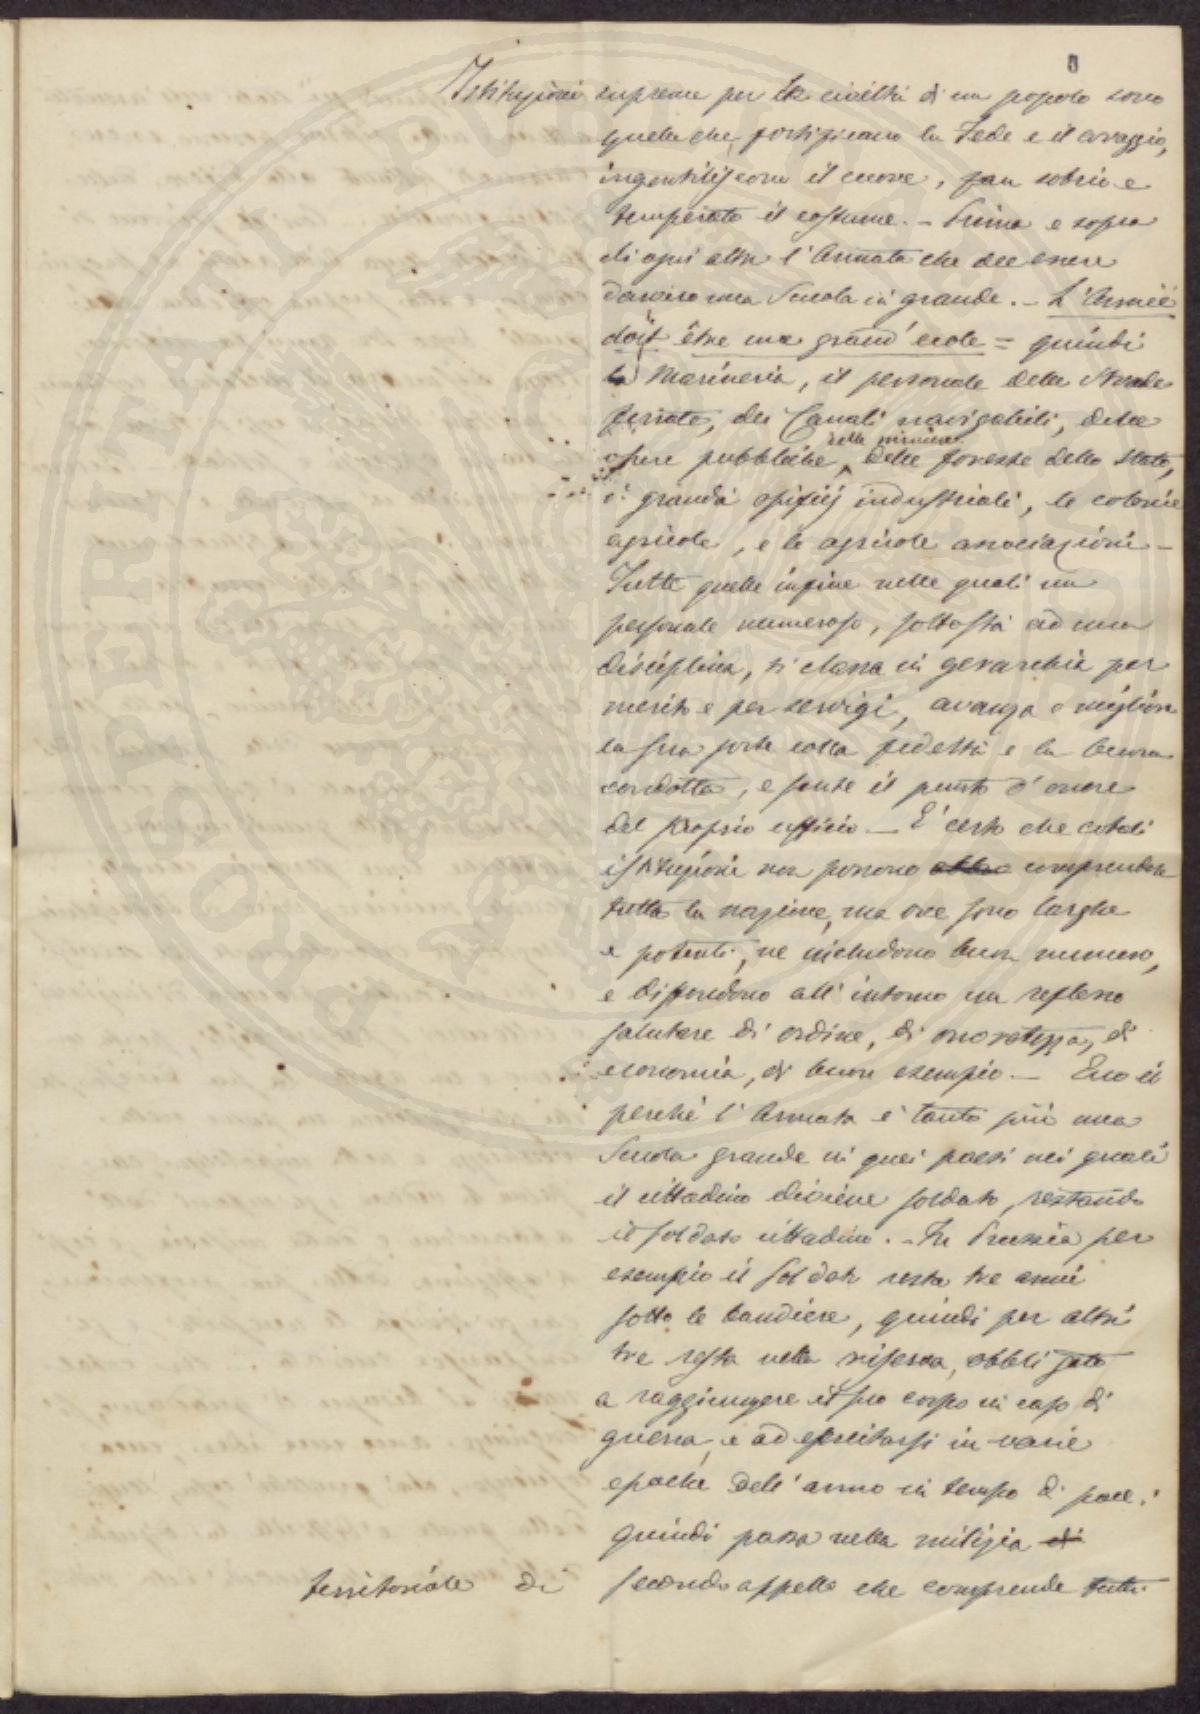 Istituzioni supreme per la civiltà di un popolo sono
quelle che fortificano la Fede e il coraggio,
ingentiliscono il cuore, fan sobrio e
temperato il costume. - Prima e sopra
di ogni altra l'Armata che dee essere
davvero una Scuola in grande. - L'Armée
doit être une grand' ecole = quindi
la Marineria, il personale delle Strade
ferrate, dei Canali navigabili, delle
opere pubbliche, delle miniere, delle foreste dello Stato,
i grandi opificij industriali, le colonie
agricole, e le agricole associazioni -
Tutte quelle infine nelle quali un
personale numeroso, sottostà ad una
disciplina, si classa in gerarchia per
merito e per servigi, avanza e migliora
la sua sorte colla fedeltà e la buona
condotta, e sente il punto d'onore
del proprio ufficio - E' certo che cotali
istituzioni non possono comprendere
tutta la nazione, ma ove sono larghe
e potenti, ne includono buon numero,
e diffondono all'intorno un riflesso
salutare di ordine, di onoratezza, di
economia, di buon esempio - Ecco il
perchè l'Armata è tanto più una
Scuola grande in quei paesi nei quali
il cittadino diviene soldato, restando
il soldato cittadino. - In Prussia per
esempio il soldato resta tre anni
sotto le bandiere, quindi per altri
tre resta nella riserva, obbligato
a raggiungere il suo corpo in caso di
guerra, e ad esercitarsi in varie
epoche dell'anno in tempo di pace;
quindi passa nella milizia di
territoriale di secondo appello che comprende tutti
PROSPERITATI PUBLICAE